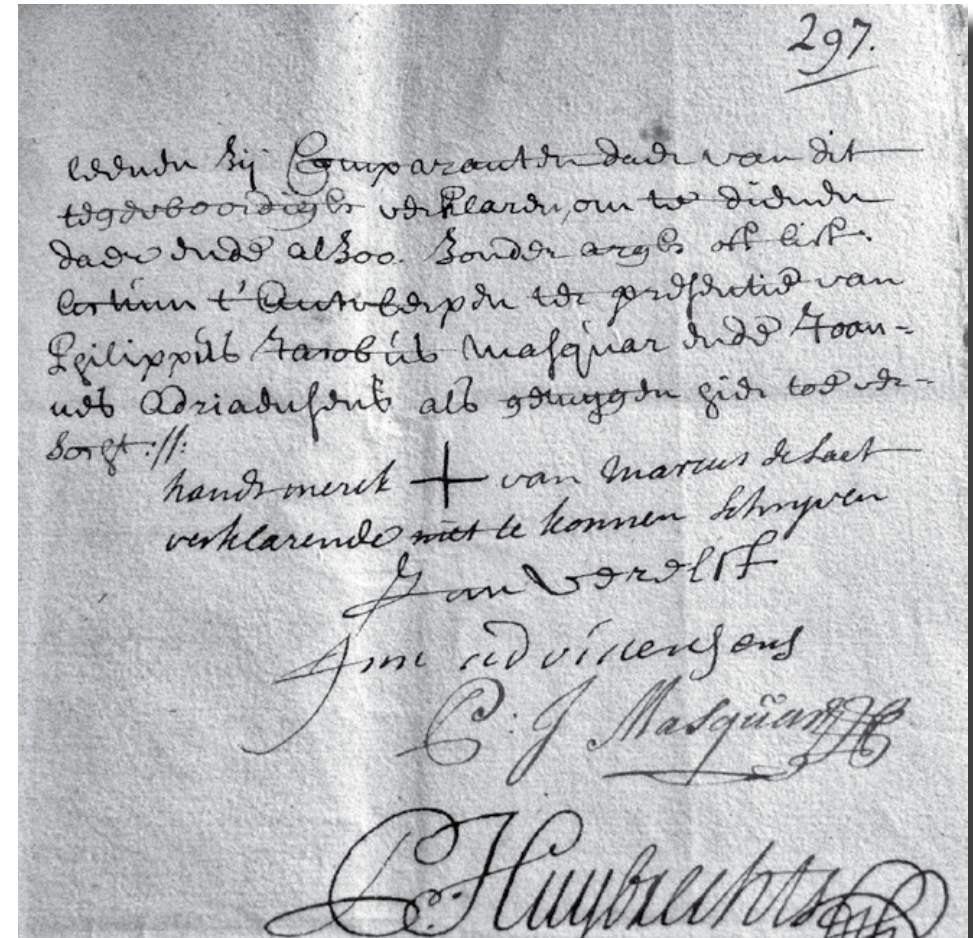 297.
leenen bij Comparanten daer van dit
tegevoordighs verklaren, om te dienen
daer ende alsoo. Sonder argh oft list.
Actum t'Antwerpen ter presentie van
Philippus Jacobus Masquar ende Joan-
nes Adriaensens als getuygen hier toe ver-
socht ://:
handtmerck + van Marcus de Laet
verklarende niet te konnen schryven
Jan Verelst
Masquar
Huybrechts